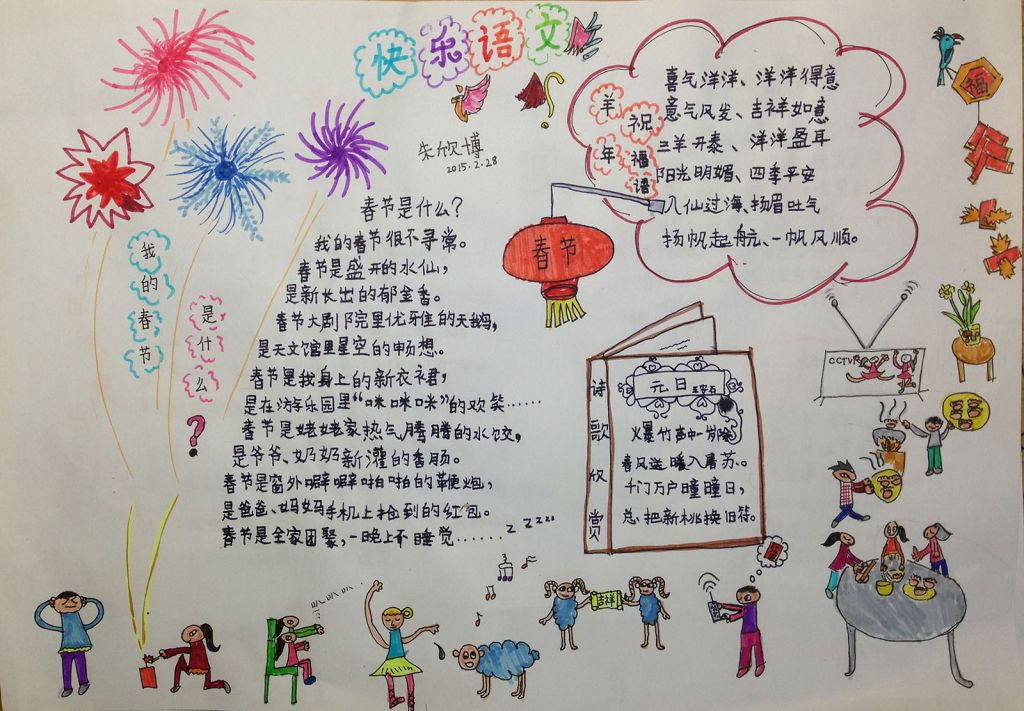 快乐语文
朱欣博
2015.2.28
羊年
祝福语
喜气洋洋、洋洋得意
意气风发、吉祥如意
三羊开泰、洋洋盈耳
阳光明媚、四季平安
八仙过海、扬眉吐气
扬帆起航、一帆风顺。
福
春节
我的春节
是什么?
春节是什么?
我的春节很不寻常。
春节是盛开的水仙,
是新长出的郁金香。
春节大剧院里优雅的天鹅,
是天文馆里星空的畅想。
春节是我身上的新衣衣裙,
是在游乐园里“咪咪咪”的欢笑……
春节是姥姥家热气腾腾的水饺,
是爷爷、奶奶新灌的香肠。
春节是窗外噼噼啪啪的鞭炮,
是爸爸、妈妈手机上抢到的红包。
春节是全家团聚,一晚上不睡觉……
zzzzz
诗歌欣赏
元日 王安石
火爆竹声中一岁除
春风送暖入屠苏。
千门万户曈曈日,
总把新桃换旧符。
CCTV
吉祥
叭叭叭